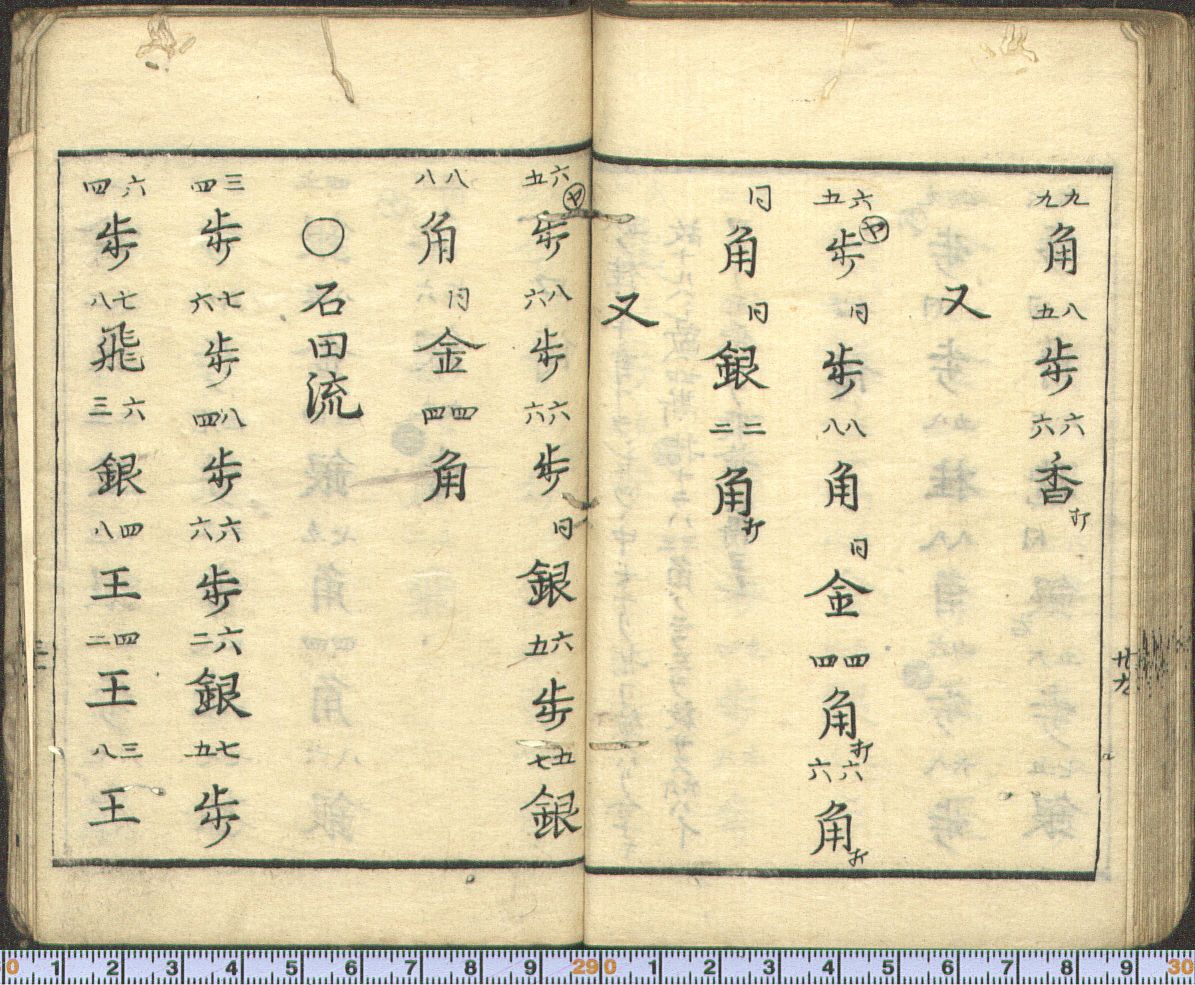 九九角八五歩六六香打
又
六五㋳歩同歩八八角同金四四角打六六角打
同角同銀二二角打
又
廿九
六五㋳歩八六歩六六歩同銀六五歩五七銀
八八角同金四四角
〇石田流
三四歩七六歩八四歩六六歩六二銀七五歩
六四歩七八飛六三銀四八王四二王三八王
0 1 2 3 4 5 6 7 8 9 29 0 1 2 3 4 5 6 7 8 9 30